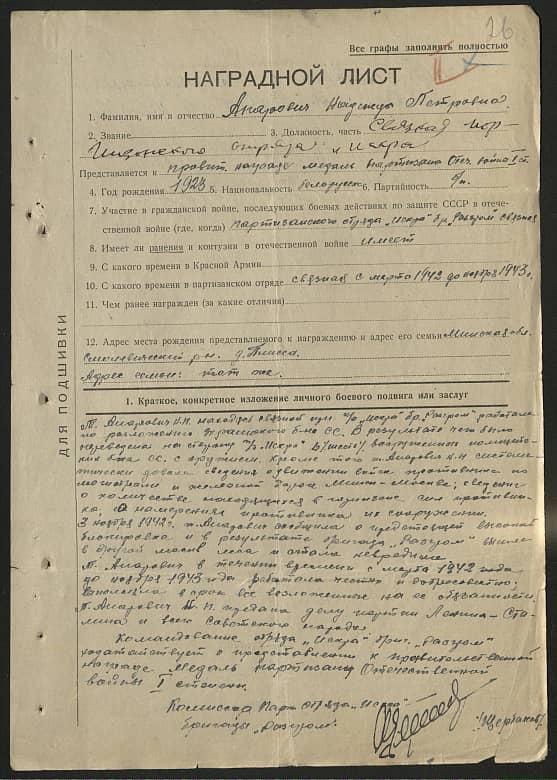 26
Все графы заполнять полностью
НАГРАДНОЙ ЛИСТ
1. Фамилия, имя и отчество Анарович Надежда Петровна
2. Звание 3. Должность, часть Связная
отряда „Искра"
Представляется к правит. награде медаль партизана Отеч. войны I ст
4. Год рождения 1923 5. Национальность белоруска 6. Партийность б/п.
7. Участие в гражданской войне, последующих боевых действиях по защите СССР в отече-
ственной войне (где, когда) партизанского отряда „Искра" бр. „Разгром" связная
8. Имеет ли ранения и контузии в отечественной войне имеет
9. С какого времени в Красной Армии
10. С какого времени в партизанском отряде связная с марта 1942 до ноября 1943 г.
11. Чем ранее награжден (за какие отличия)
12. Адрес места рождения представляемого к награждению и адрес его семьи Минская обл.
Смолевичский р-н. д. Плисса
Адрес семьи: там же.
ДЛЯ ПОДШИВКИ
1. Краткое, конкретное изложение личного боевого подвига или заслуг
Т. Анарович Н.П. находясь связной при п/о „Искра" бр. „Разгром" работала
по разложению б-на СС. В результате чего было
переведено на сторону п/о „Искра" 6 /шесть/ вооруженных
б-на СС. с оружием. Кроме того т. Анарович Н.П. система-
тически давала сведения о движении войск противника по
магистрали и железной дороге Минск-Москва; сведения
о количестве находящихся в гарнизоне сил противни-
ка, о намерениях противника их вооружении.
3 ноября 1942 г. т. Анарович сообщила о предстоящей
блокировке и в результате бригада „Разгром" вышла
в другой массив леса и стала невредима
Т. Анарович в течении времени с марта 1942 года
до ноября 1943 года работала честно и добросовестно;
выполняла в срок все возложенные на ее обязанности.
Т. Анарович Н.П. предана делу партии Ленина-Ста-
лина и всего Советского народа.
Командование отряда „Искра" бриг. „Разгром"
ходатайствует о представлении к правительственной
награде медаль партизану Отечественной
войны I степени.
Комиссар парт. отряда „Искра"
бригады „Разгром".